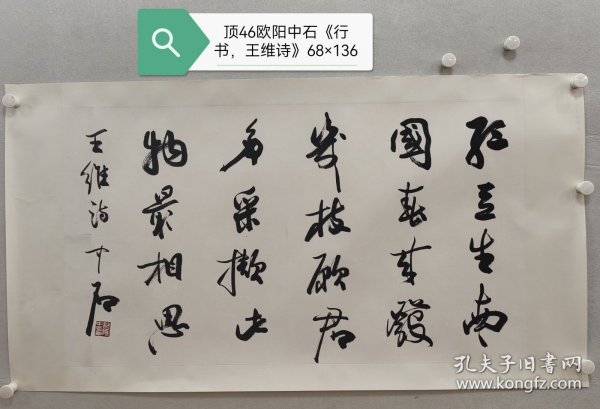 顶46欧阳中石《行
书，王维诗》68×136
红豆生南
國春来發
幾枝願君
多采撷此
物最相思
王维诗中石
孔夫子旧书网
www.kongfz.com